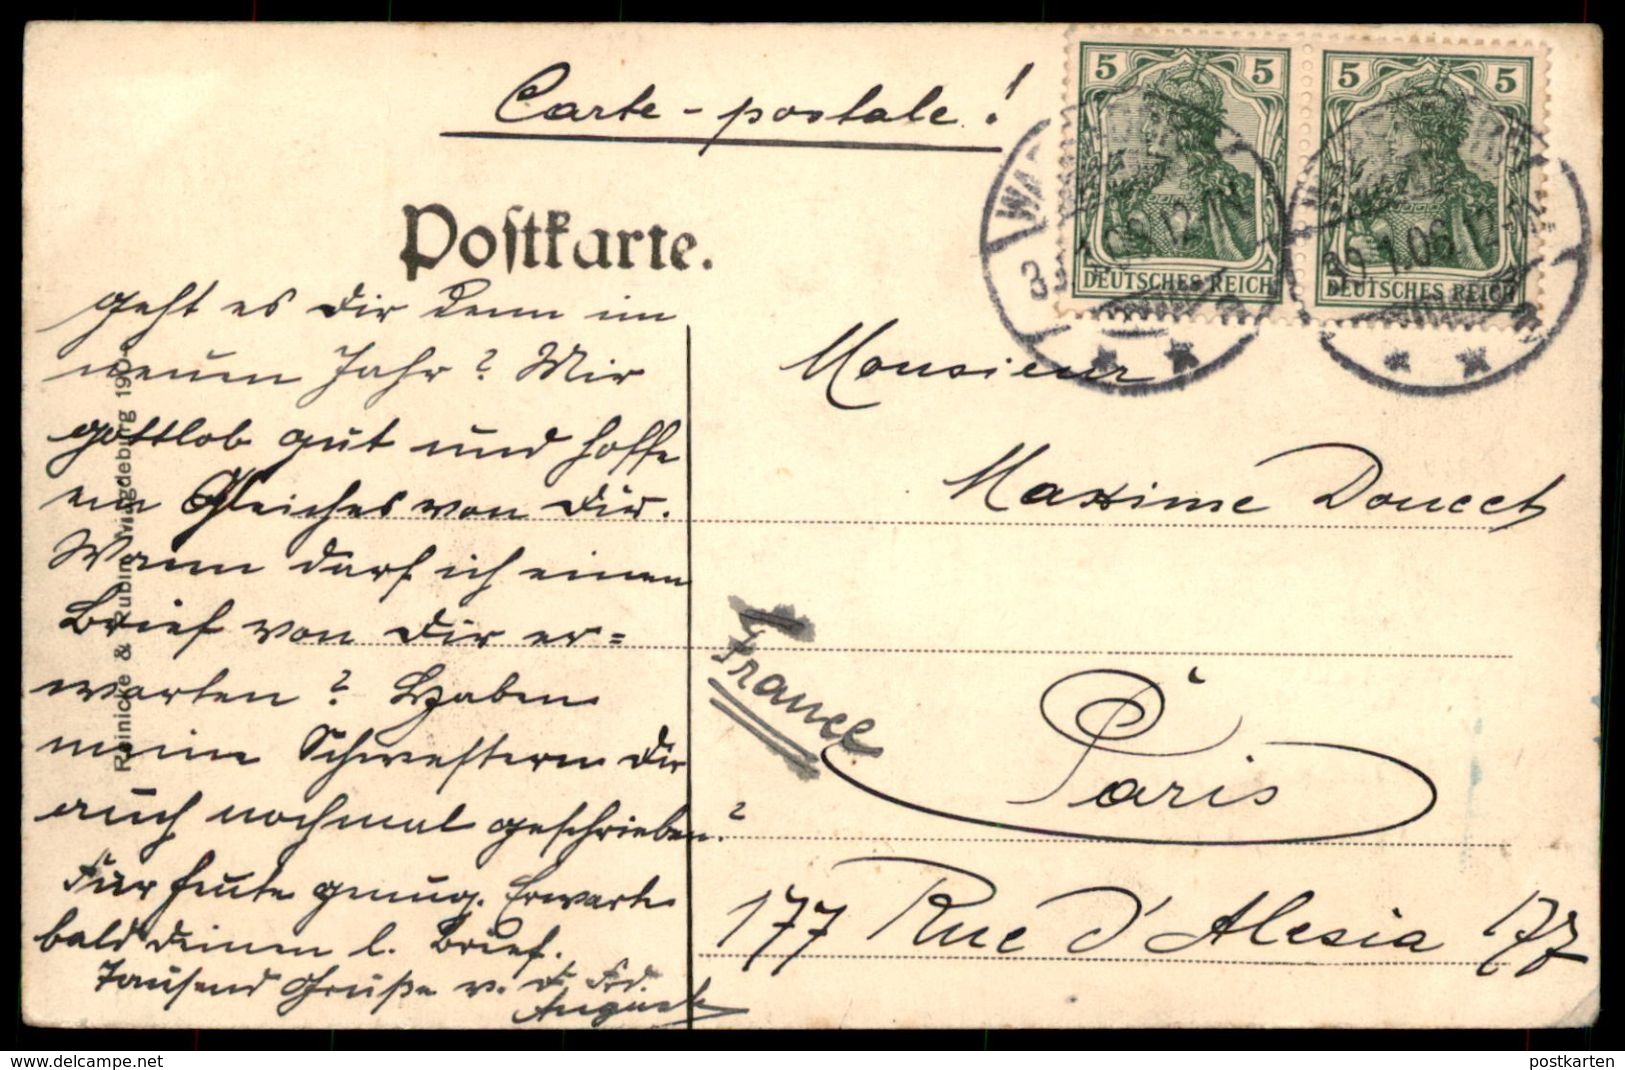 Carte-postale!
Postkarte.
5 5
DEUTSCHES REICH
5 5
DEUTSCHES REICH
30.1.06.12
geht es Dir denn im
neuen Jahr? Mir
gottlob gut und hoffe
ein Gleiches von Dir.
Wann darf ich einen
Brief von Dir er=
warten? Haben
meine Schwestern Dir
auch nochmal geschrieben?
Für heute genug. Erwarte
bald deinen l. Brief.
Tausend Grüße v. D. Frd.
August
Monsieur
Maxime Doucet
France
Paris
177 Rue d'Alesia 177
Reinicke & Rubin, Magdeburg 190
www.delcampe.net
postkarten